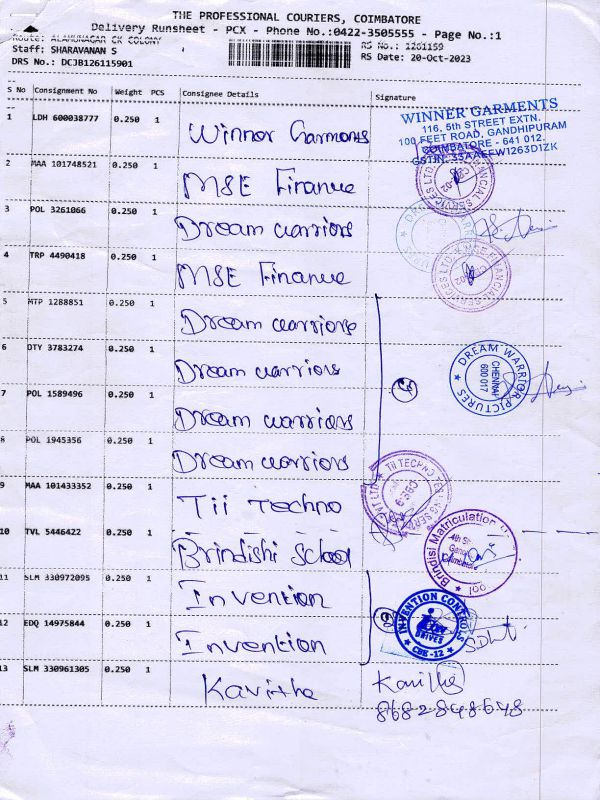 THE PROFESSIONAL COURIERS, COIMBATORE
Delivery Runsheet - PCX - Phone No.:0422-3505555 - Page No.:1
Route: ALAMUNAGAR CK COLONY
RS No.: 1261159
Staff: SHARAVANAN S
RS Date: 20-Oct-2023
DRS No.: DCJB126115901
S No Consignment No Weight PCS Consignee Details Signature
1 LDH 600038777 0.250 1 Winner Garments
WINNER GARMENTS
116, 5th STREET EXTN.
100 FEET ROAD, GANDHIPURAM
COIMBATORE - 641 012.
2 MAA 101748521 0.250 1 MSE Finance
3 POL 3261066 0.250 1 Dream warriors
4 TRP 4490418 0.250 1 MSE Finance
5 MTP 1288851 0.250 1 Dream warriors
6 DTY 3783274 0.250 1 Dream warriors
DREAM WARRIOR PICTURES
CHENNAI
600 017
7 POL 1589496 0.250 1 Dream warriors
8 POL 1945356 0.250 1 Dream warriors
9 MAA 101433352 0.250 1 Tii Techno
10 TVL 5446422 0.250 1 Brindishi School
Brindisi Matriculation
11 SLM 330972095 0.250 1 Invention
12 EDQ 14975844 0.250 1 Invention
INVENTION CONTROLS
DRIVES
CBE-12
13 SLM 330961305 0.250 1 Kavitha
Kavitha
8682848648